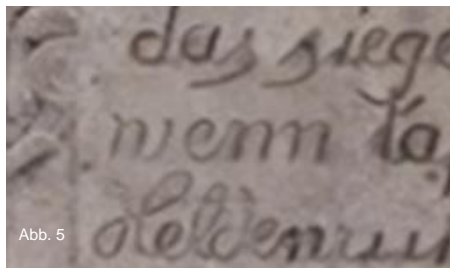 das siege
wenn ta
Heldenru
Abb. 5